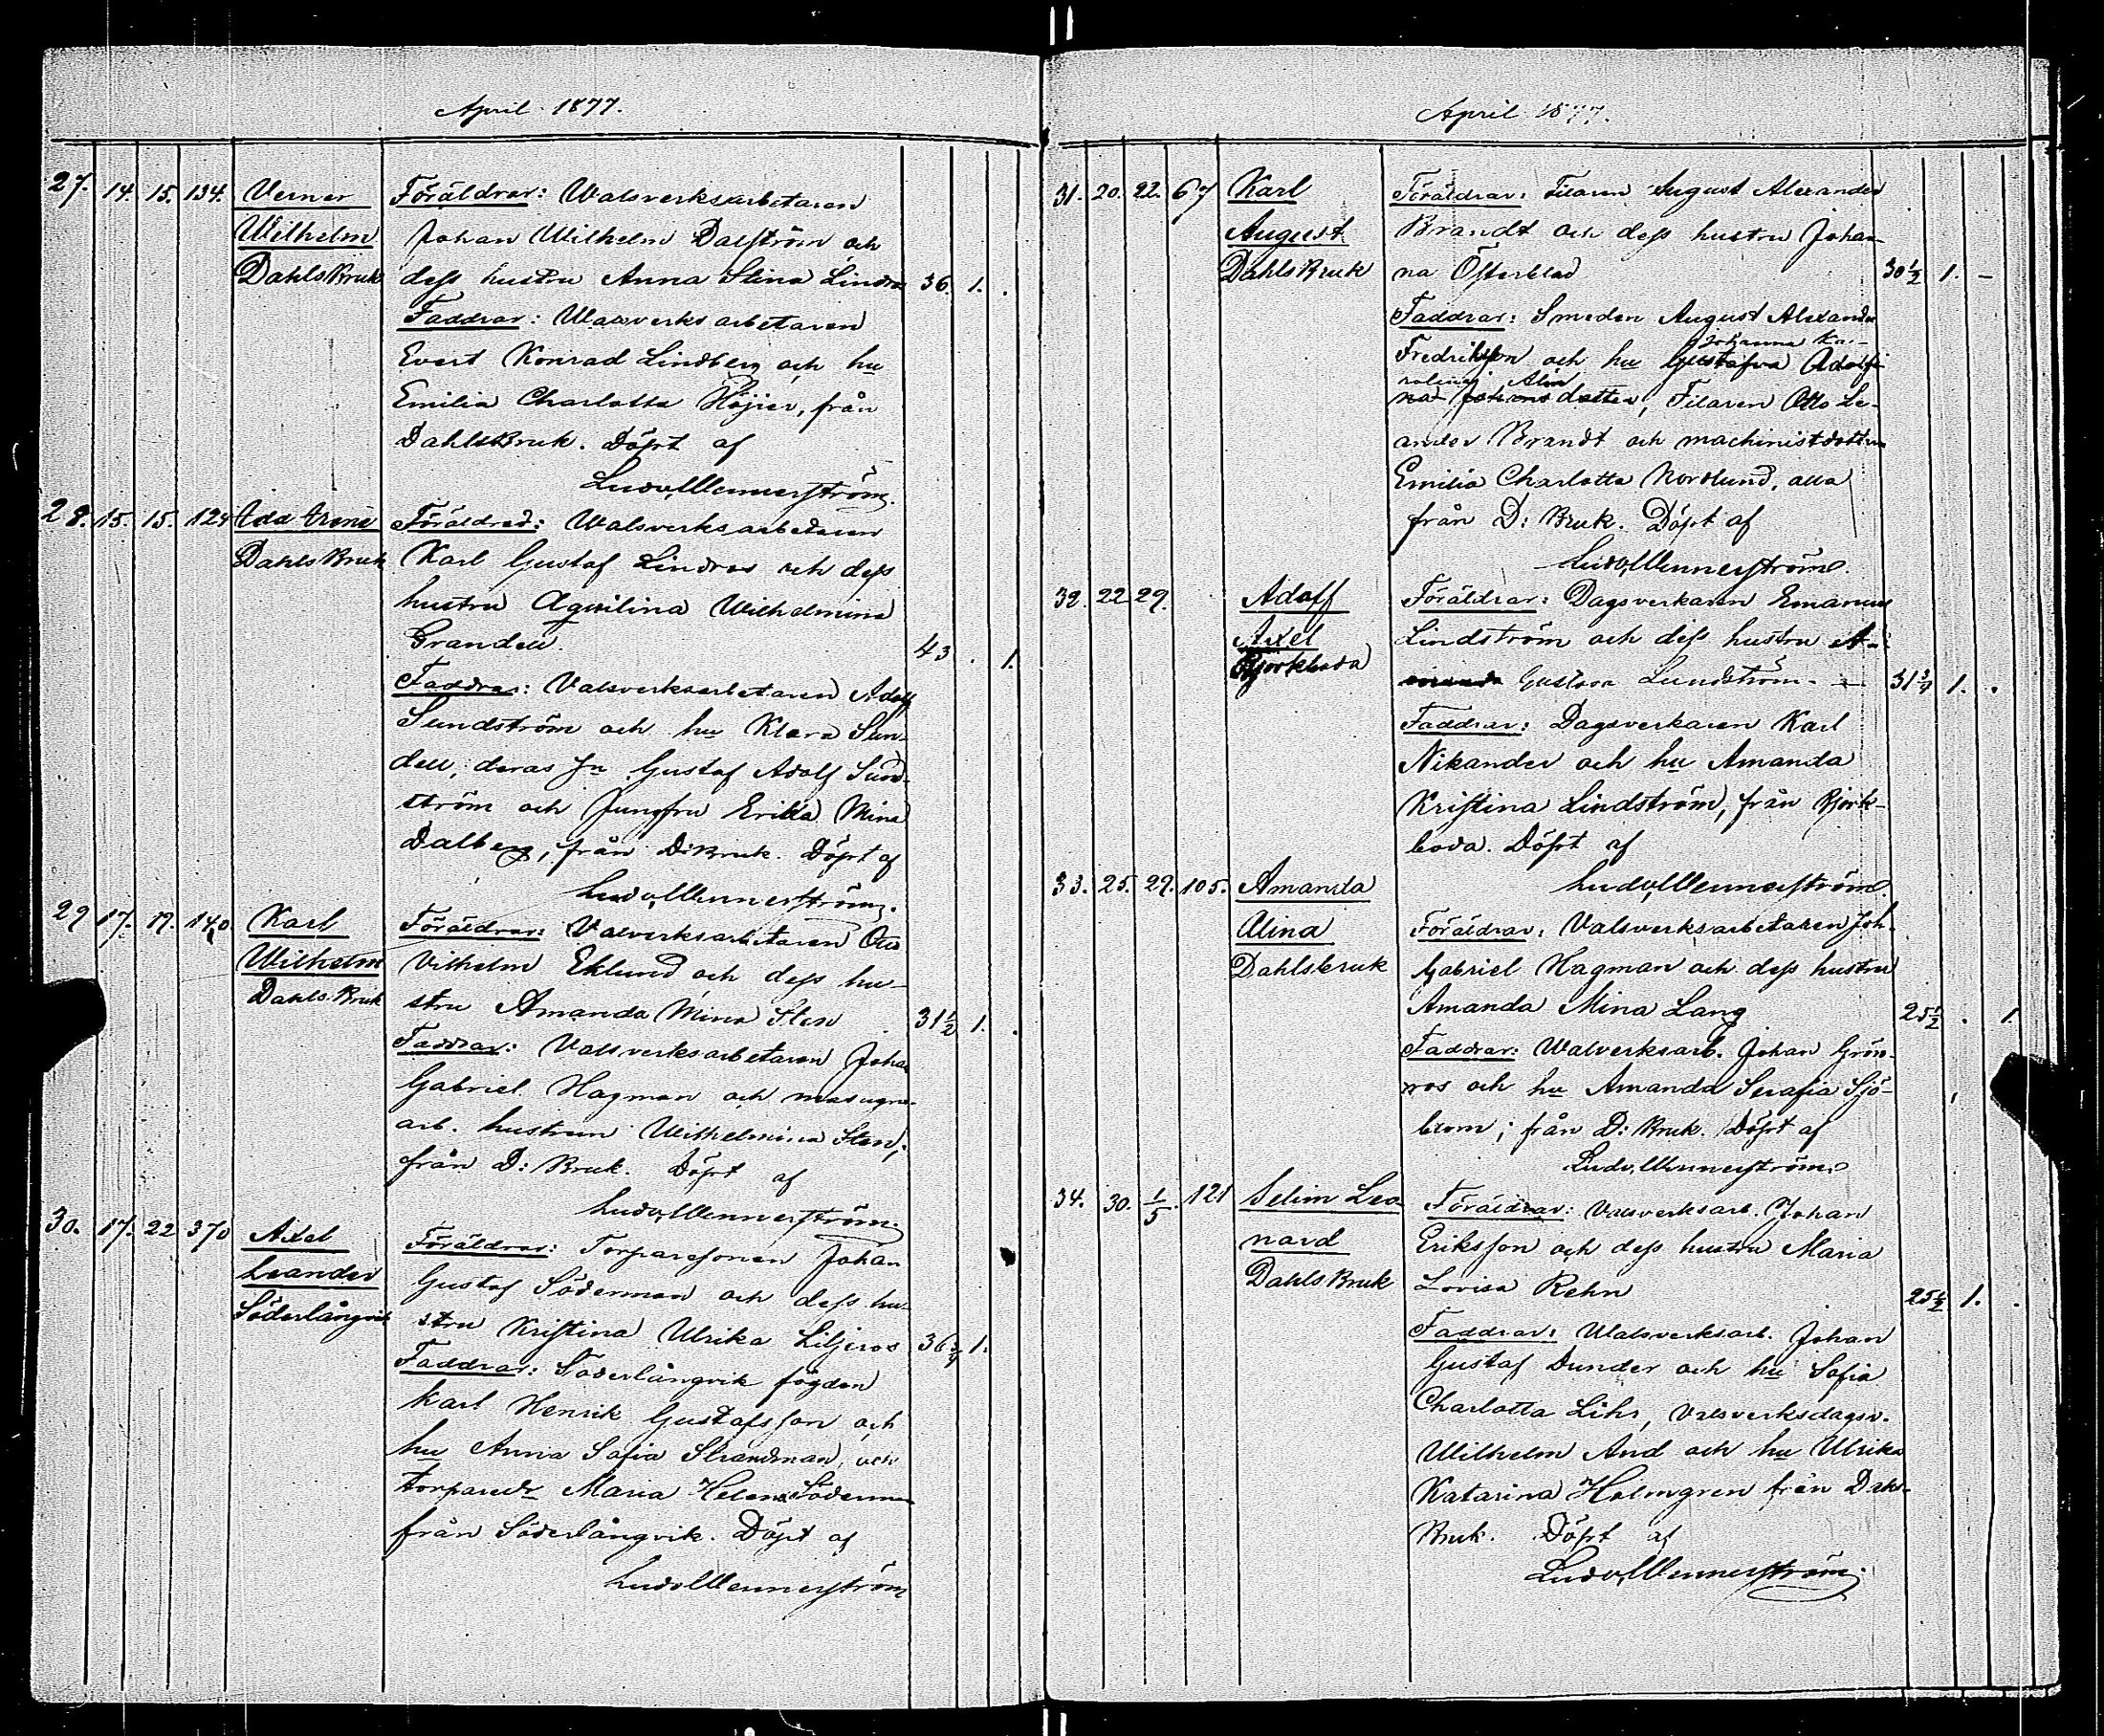 April 1877.
27. 14. 15. 134. Verner Föräldrar: Walsverksarbetaren
Wilhelm Johan Wilhelm Dalström och
Dahls Bruk dess hustru Anna Stina Lindros 36. 1. .
Faddrar: Walsverks arbetaren
Evert Konrad Lindberg och hu
Emilia Charlotta Höjier, från
DahlsBruk. Döpt af
Ludv. Wennerström.
28. 15. 15. 124 Ida Irene Föräldrar: Walsverks arbetaren
Dahls Bruk Karl Gustaf Lindros och dess
hustru Aqvilina Wilhelmina
Grandell. 43 . 1.
Faddrar: Valsverksarbetaren Adolf
Sundström och hu Klara Sun-
dell, deras Sn Gustaf Adolf Sund-
ström och Jungfru Erika Mina
Dalberg, från D:Bruk. Döpt af
Ludv. Wennerström.
29 17. 19. 140 Karl Föräldrar: Valsverksarbetaren Otto
Wilhelm Vilhelm Eklund och dess hu-
Dahls Bruk stru Amanda Mina Sten 31 1/2 1. .
Faddrar: Valsverksarbetaren Johan
Gabriel Hagman och masugns-
arb. hustrun Wilhelmina Sten,
från D: Bruk. Döpt af
Ludv. Wennerström.
30. 17. 22 370 Axel Föräldrar: Torparesonen Johan
Leander Gustaf Söderman och dess hu-
Söderlångvik stru Kristina Ulrika Liljeros 36 3/4 1.
Faddrar: Söderlångvik fogden
Karl Henrik Gustafsson och
hu Anna Sofia Strandman, och
torparedr Maria Helena Söderman
från Söderlångvik. Döpt af
Ludv. Wennerström
April 1877.
31. 20. 22. 67 Karl Föräldrar: Filaren August Alexander
August Brandt och dess hustru Johan-
Dahls Bruk na Österblad 30 1/2 1. -
Faddrar: Smeden August Alexander
Johanna Ka-
Fredriksson och hu Gustafva Adolfi-
rolina Alm
na Johansdotter, Filaren Otto Le-
ander Brandt och machinistdottren
Emilia Charlotta Nordlund, alla
från D: Bruk. Döpt af
Ludv. Wennerström.
32. 22 29. Adolf Föräldrar: Dagsverkaren Emanuel
Axel Lindström och dess hustru A-
Björkboda manda Gustava Lundström. — 31 3/4 1. .
Faddrar: Dagsverkaren Karl
Nikander och hu Amanda
Kristina Lindström, från Björk-
boda. Döpt af
Ludv. Wennerström.
33. 25. 29. 105. Amanda
Alina Föräldrar: Valsverksarbetaren Joh.
Dahlsbruk Gabriel Hagman och dess hustru
Amanda Mina Lang 25 1/2 . 1.
Faddrar: Walverksarb. Johan Grön-
ros och hu Amanda Serafia Sjö-
blom; från D: Bruk. Döpt af
Ludv. Wennerström.
34. 30. 1/5. 121 Selim Leo- Föräldrar: Valsverksarb. Johan
nard Eriksson och dess hustru Maria
Dahls Bruk Lovisa Rehn 25 1/2 1. .
Faddrar: Walsverksarb. Johan
Gustaf Dunder och hu Sofia
Charlotta Lihr, Valsverksdagsv.
Wilhelm And och hu Ulrika
Katarina Holmgren från Dahls-
Bruk. Döpt af
Ludv. Wennerström.